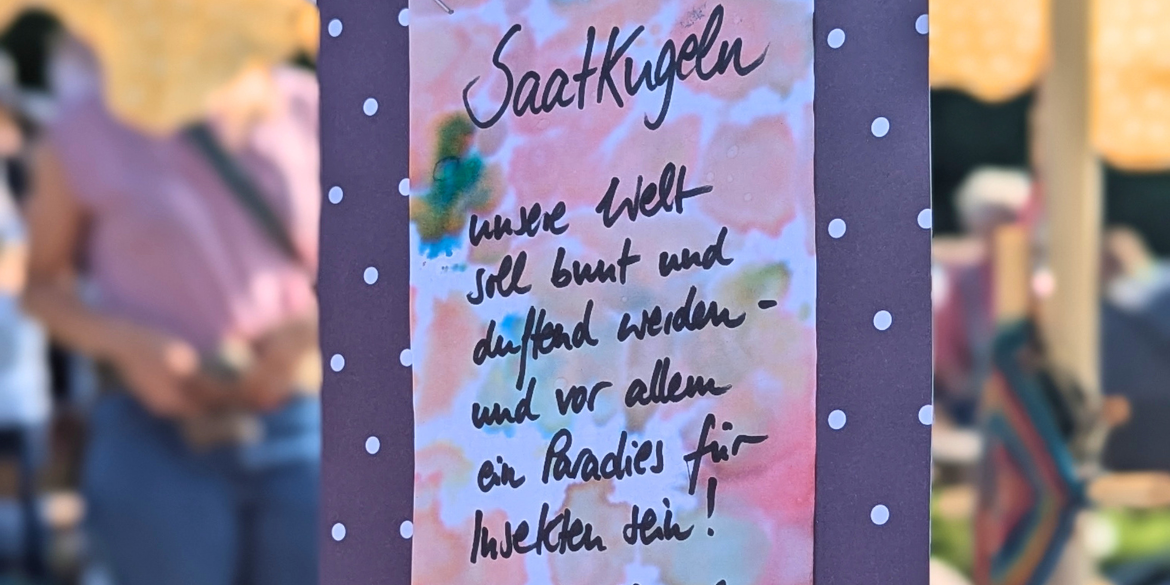 SaatKugeln
unsere Welt
soll bunt und
duftend werden -
und vor allem
ein Paradies für
Insekten sein!